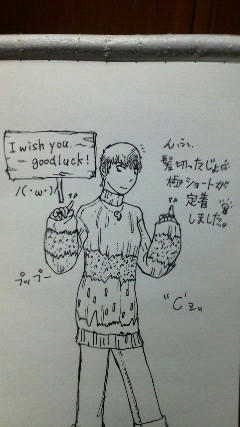 I wish you
good luck!
/(・ω・)/
んふ、
髪切ったじょぶ
極ショートが
定着
しました。
プップー
"C'zぃ